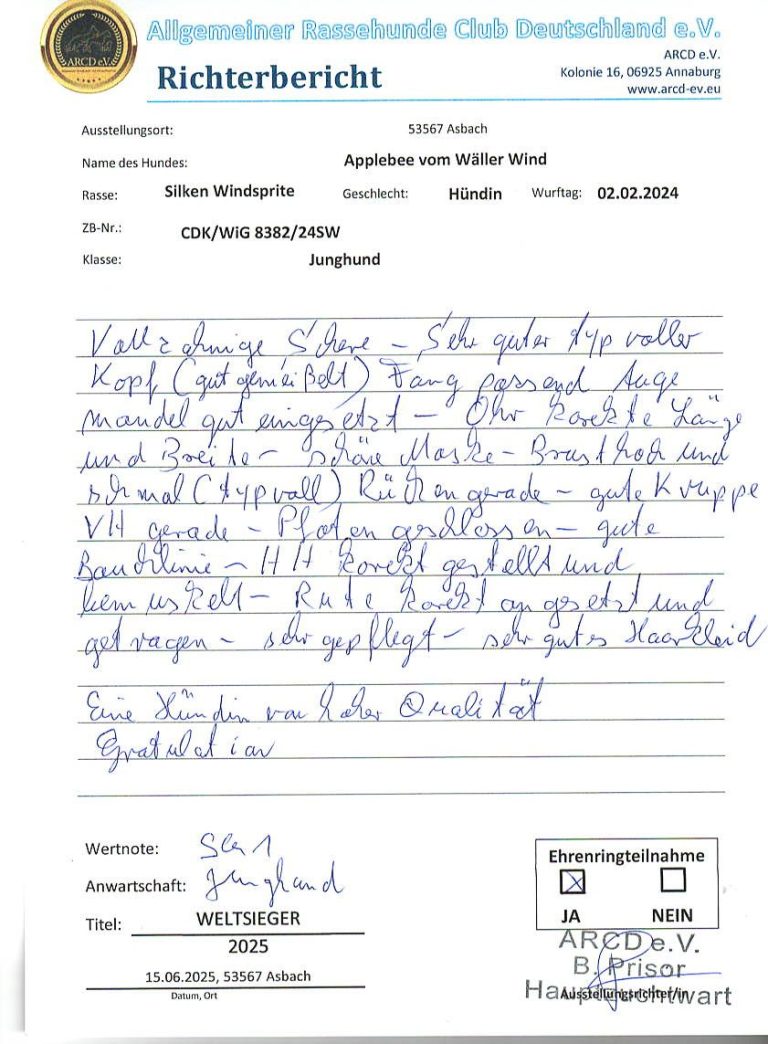 Allgemeiner Rassehunde Club Deutschland e.V.
ARCD e.V.
Richterbericht
ARCD e.V.
Kolonie 16, 06925 Annaburg
www.arcd-ev.eu
Ausstellungsort: 53567 Asbach
Name des Hundes: Applebee vom Wäller Wind
Rasse: Silken Windsprite Geschlecht: Hündin Wurftag: 02.02.2024
ZB-Nr.: CDK/WiG 8382/24SW
Klasse: Junghund
Vollzahnige Schere – Sehr guter typvoller
Kopf (gut gemeißelt) Fang passend Auge
mandel gut eingesetzt – Ohr korekte Länge
und Breite – schöne Maske – Brust hoch und
schmal (typvoll) Rücken gerade – gute Kruppe
VH gerade – Pfoten geschlossen – gute
Bauchlinie – HH korekt gestellt und
bemuskelt – Rute korekt angesetzt und
getragen – sehr gepflegt – sehr gutes Haarkleid
Eine Hündin von hoher Qualität
Gratulation
Wertnote: 1
Anwartschaft: Junghund
Titel: WELTSIEGER
2025
15.06.2025, 53567 Asbach
Datum, Ort
Ehrenringteilnahme
JA NEIN
ARCD e.V.
B. Prisor
Hauptzuchtwart
Ausstellungsrichter/in